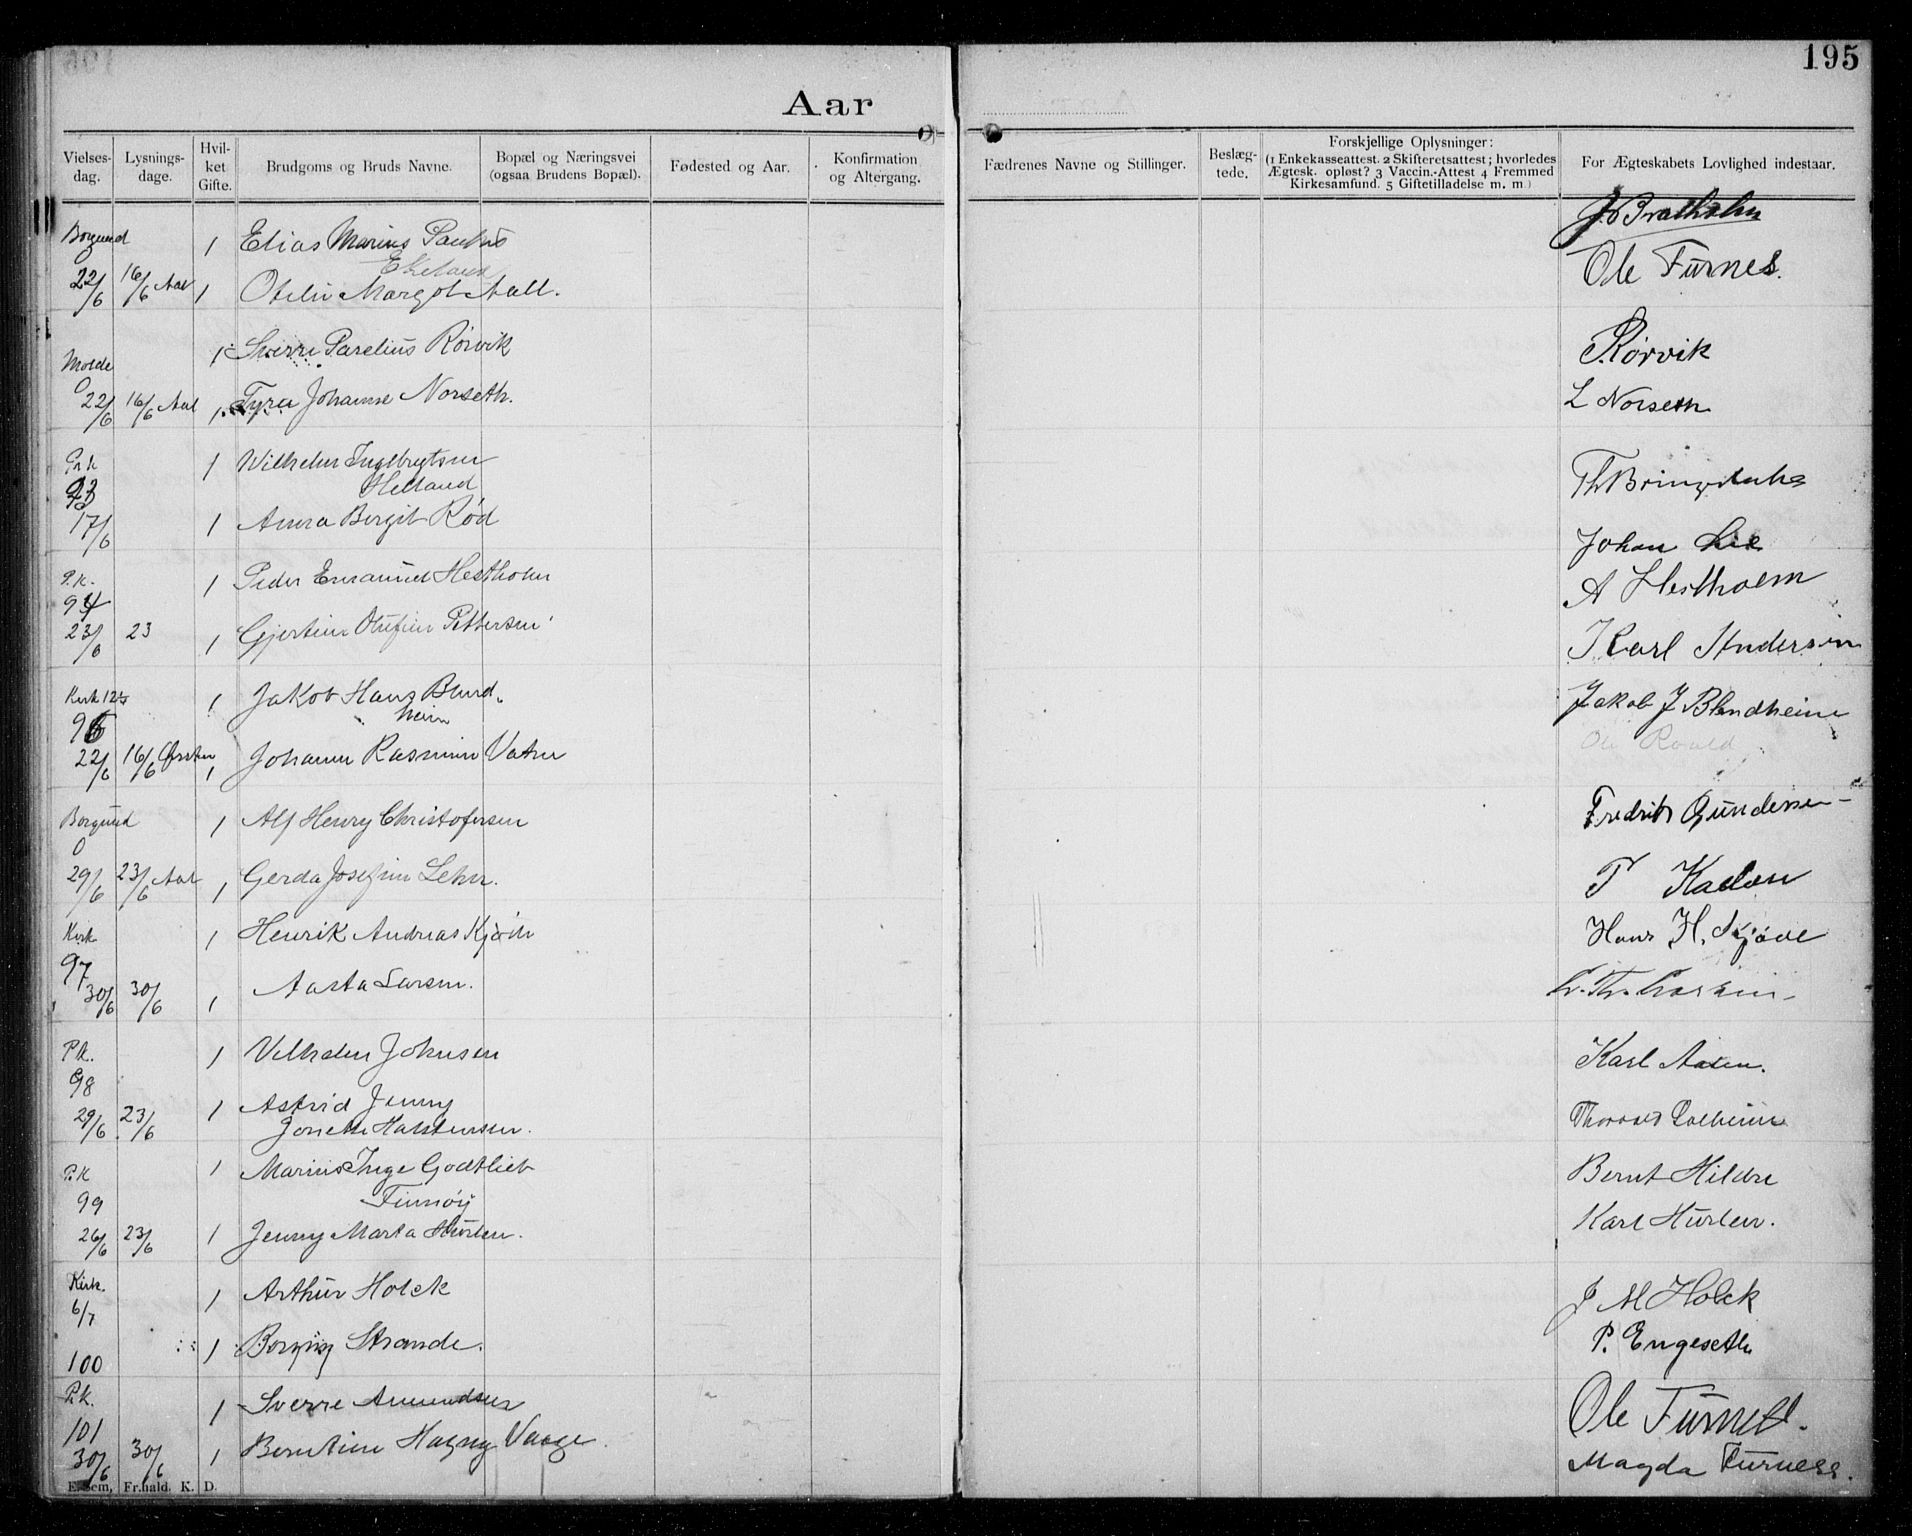 195
Aar
Vielses-dag. Lysnings-dage. Hvil-ket Gifte. Brudgoms og Bruds Navne. Bopæl og Næringsvei (ogsaa Brudens Bopæl). Fødested og Aar. Konfirmation og Altergang. Fædrenes Navne og Stillinger. Beslæg-tede. Forskjellige Oplysninger: (1 Enkekasseattest. 2 Skifteretsattest; hvorledes Ægtesk. opløst? 3 Vaccin.-Attest 4 Fremmed Kirkesamfund. 5 Giftetilladelse m. m.) For Ægteskabets Lovlighed indestaar.
Borgund 1 Elias Marius
Ekeland Ole Furnes.
22/6 16/6 Aal 1 Margot Aall.
Molde 1 Sverre Parelius Rørvik Rørvik
22/6 16/6 Aal 1 Johanne Norseth. L Norseth
1 Wilhelm Ingebrigtsen
Helland
93
17/6 1 Anna Bergit Rød Johan Lie
P.K. 1 Peder Emanuel Hestholm A Hestholm
94
23/6 23 1 Gjertine Olufine Pettersen Karl Andersen
Kirk 12½ 1 Jakob Hans Blind- Jakob J Blindheim
heim Ole Roald
22/6 16/6 Ørsten 1 Johanne Rasmine Vatne
Borgund 1 Alf Henry Christofersen Fredrik Gundersen
29/6 23/6 Aal 1 Gerda Josefine Lehn.
Kirk 1 Henrik Andreas Hans H.
97
30/6 30/6 1 Aasta Larsen.
P.K. 1 Vilhelm Johnsen Karl Aasen.
98
29/6 23/6 1 Astrid Jenny
Jonette Halstensen. Thorvald Solheim
P.K 1 Marius Inge Godtlieb Bernt Hildre
99 Finnøy
26/6 23/6 1 Jenny Marta Hurlen. Karl Hurlen.
Kirk. 1 Arthur Holck J M Holck
6/7
100 1 Strande. P. Engeseth
P.K. 1 Sverre Amundsen Ole Furnes.
101
30/6 30/6 1 Berntine Hagny Vaage. Magda Furness.
E. Sem, Fr.hald. K. D.